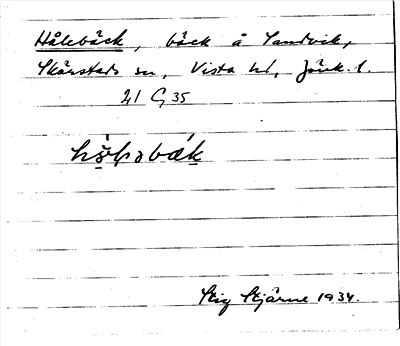 Hålebäck, bäck å Sandvik,
Skärstads sn, Vista hd, Jönk. l.
21 G 35
Stig Stjärne 1934.